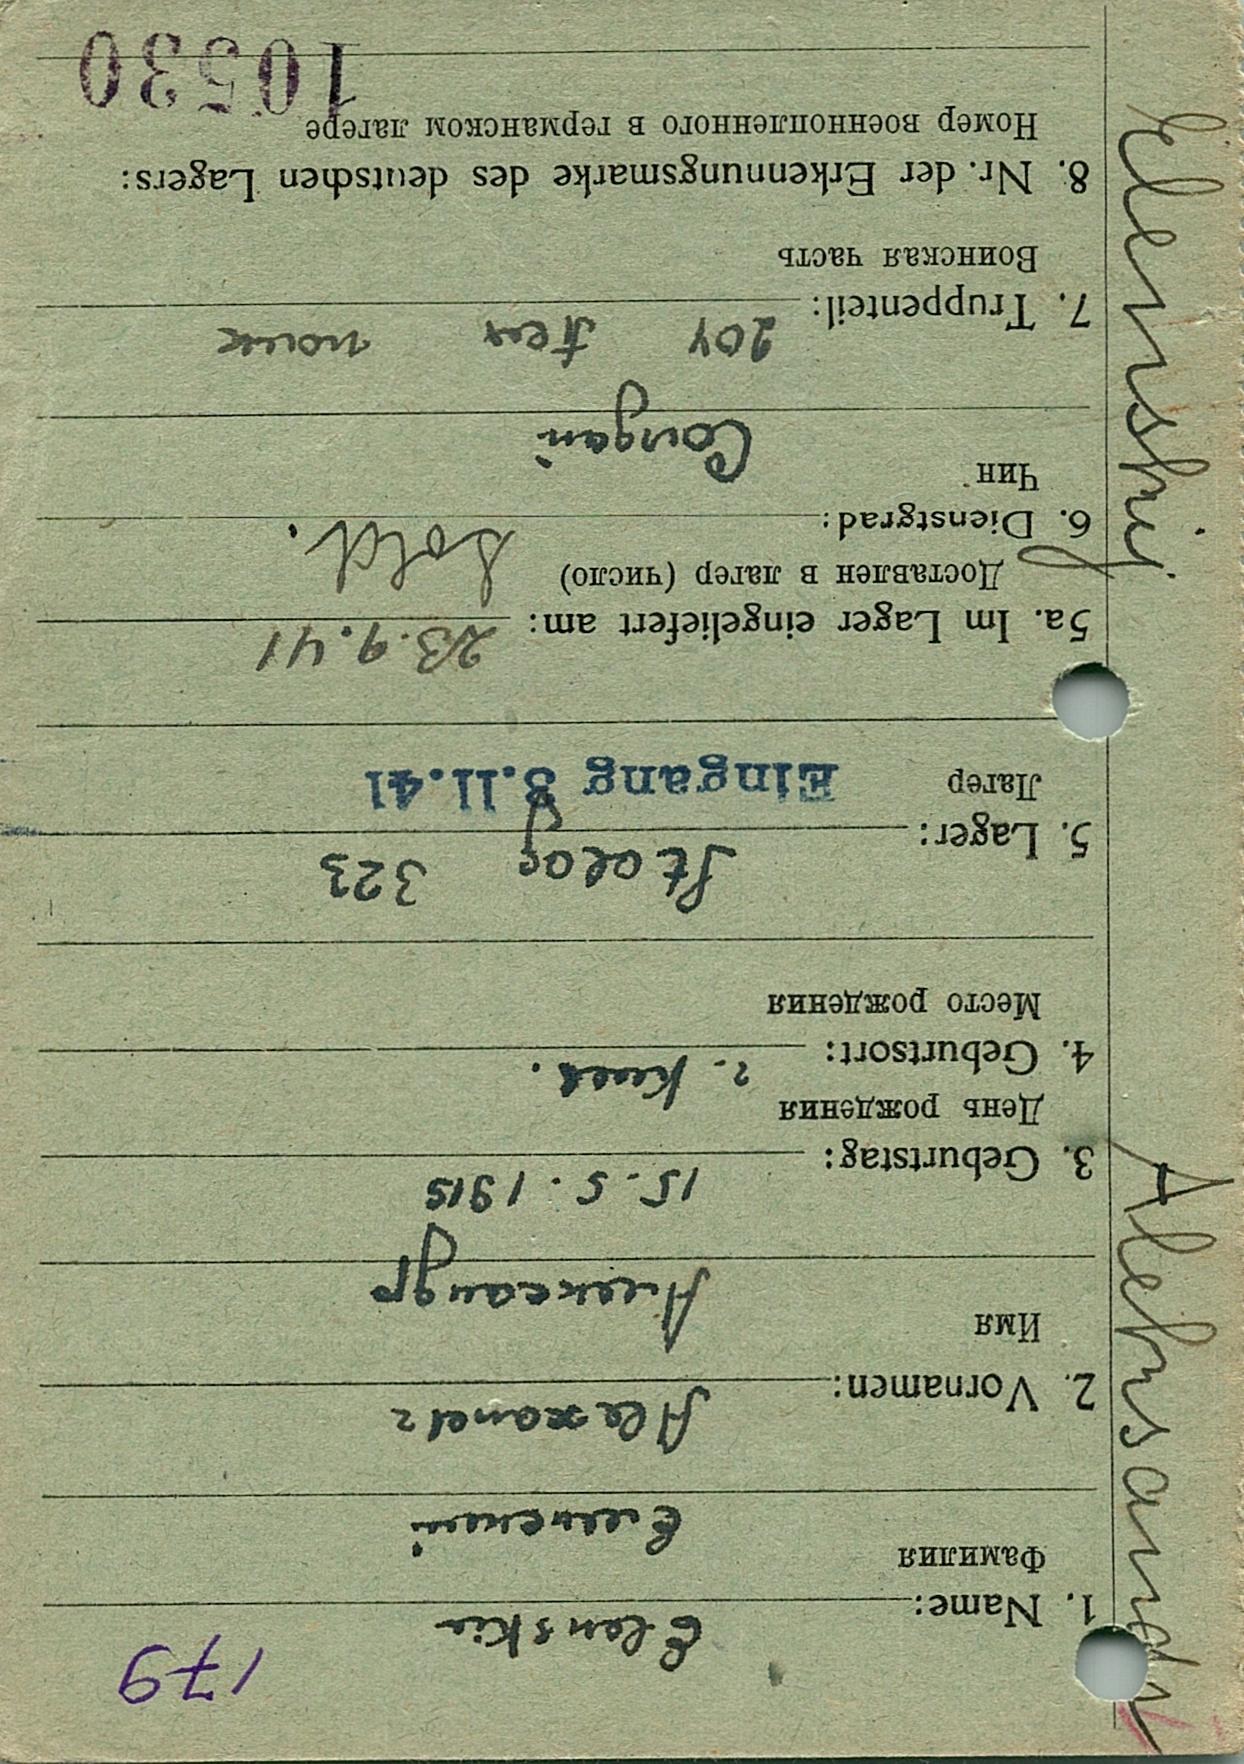 179
1. Name: Elenskie
Фамилия
Еленский
2. Vornamen: Alexandr
Имя
Александр
3. Geburtstag: 15.5.1915
День рождения
4. Geburtsort: г. Киев.
Место рождения
5. Lager: Stalag 323
Лагер Eingang 3.11.41
5a. Im Lager eingeliefert am: 23.9.41
Доставлен в лагер (число)
6. Dienstgrad: Sold.
Чин
Солдат
7. Truppenteil: 204 полк
Воинская часть
8. Nr. der Erkennungsmarke des deutschen Lagers:
Номер военнопленного в германском лагере
10530
Elenskij Aleksandr